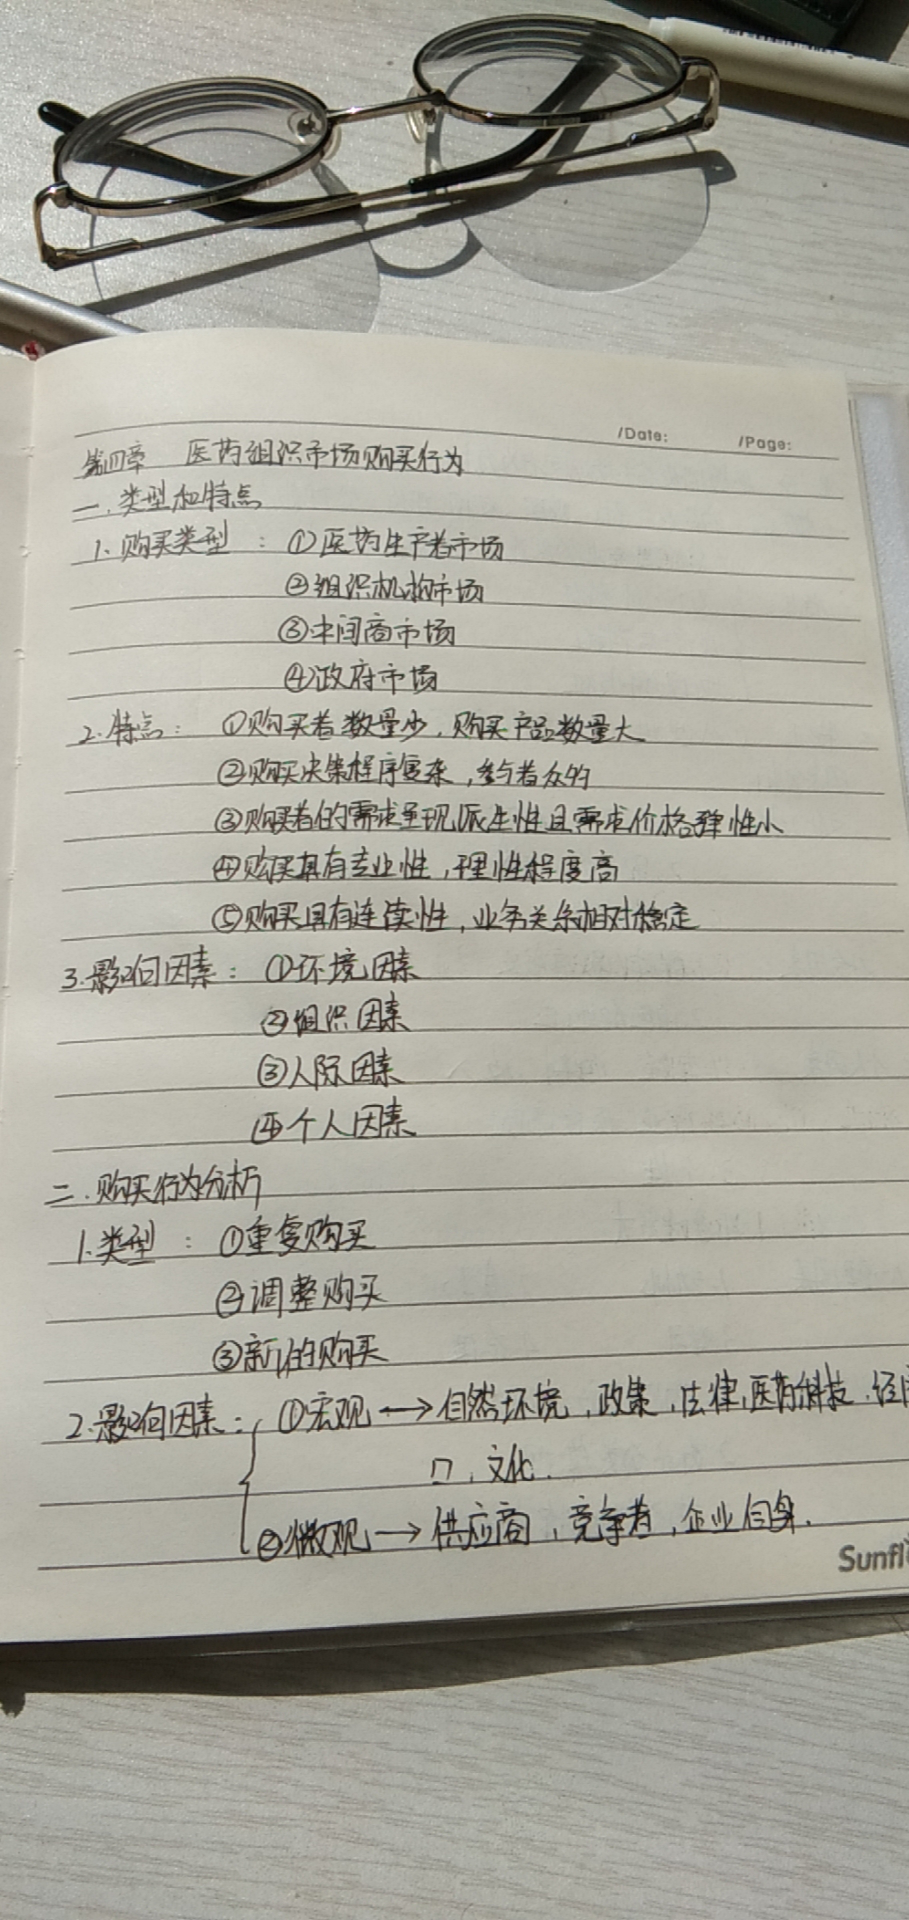 /Date: /Page:
第四章 医药组织市场购买行为
一.类型和特点
1.购买类型：①医药生产者市场
②组织机构市场
③中间商市场
④政府市场
2.特点：①购买者数量少，购买产品数量大
②购买决策程序复杂，参与者众的
③购买者的需求呈现派生性且需求价格弹性小
④购买具有专业性，理性程度高
⑤购买具有连续性，业务关系相对稳定
3.影响因素：①环境因素
②组织因素
③人际因素
④个人因素
二.购买行为分析
1.类型：①重复购买
②调整购买
③新的购买
2.影响因素：①宏观→自然环境，政策，法律，医药科技，
口，文化.
②微观→供应商，竞争者，企业自身.